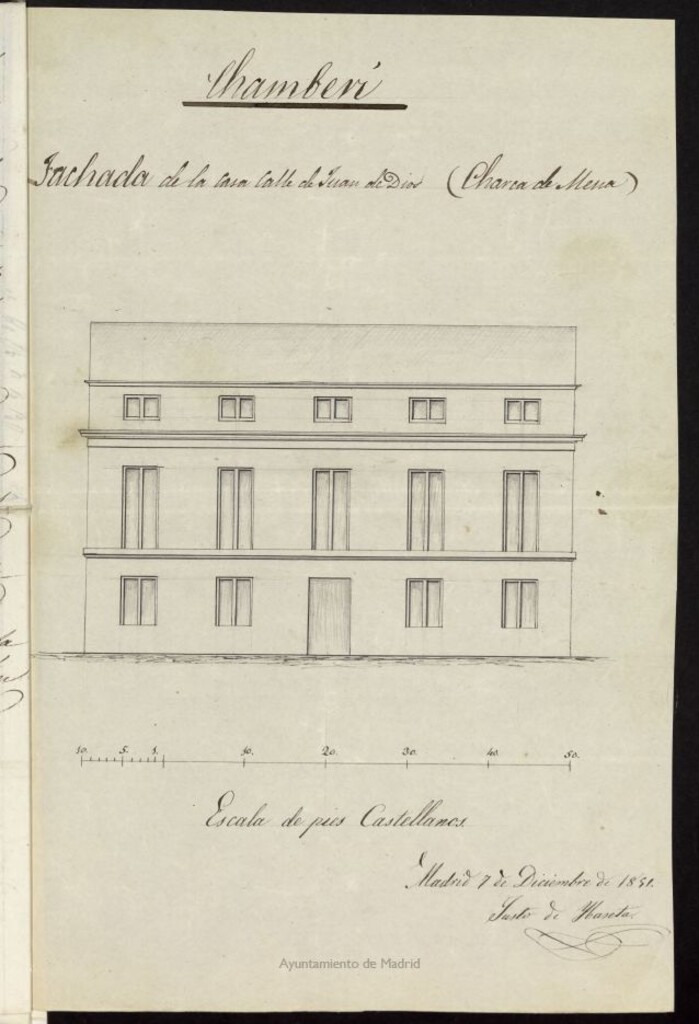 Chamberí
Fachada de la casa Calle de Juan de Dios (Charca de Mena)
10. 5. 1. 10. 20. 30. 40. 50.
Escala de pies Castellanos
Madrid 7 de Diciembre de 1851.
Justo de
Ayuntamiento de Madrid